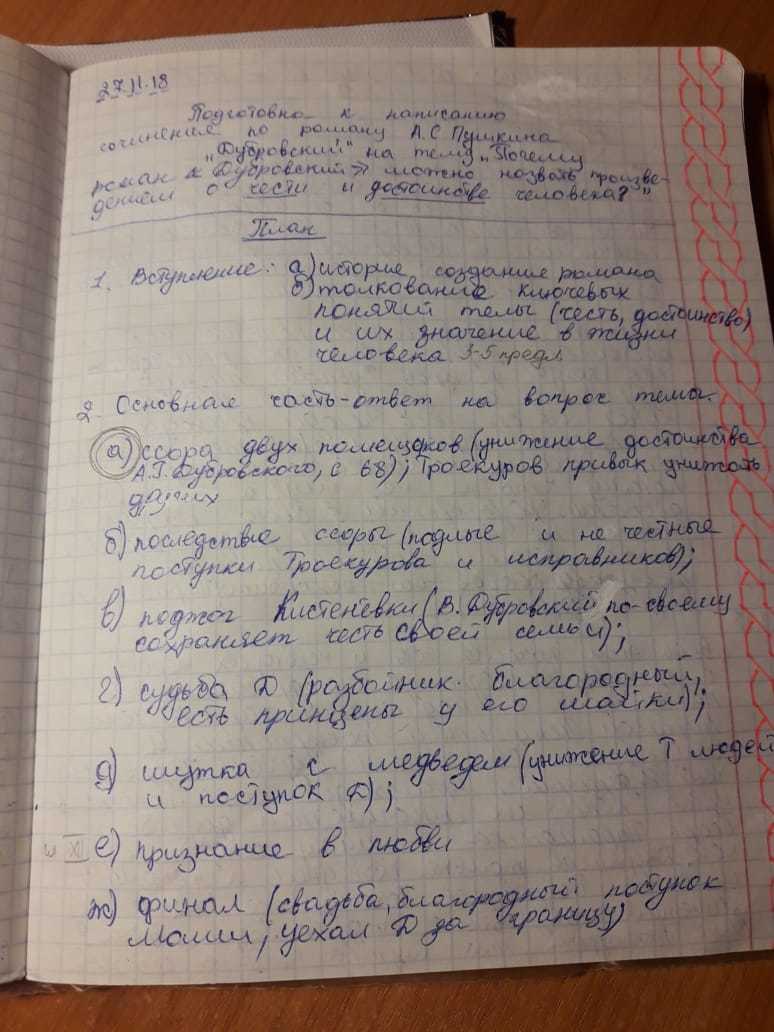 27.11.18
Подготовка к написанию
сочинения по роману А.С Пушкина
„Дубровский" на тему „Почему
роман «Дубровский» можно назвать произве-
дением о чести и достоинстве человека?"
План
1. Вступление: а) история создание романа
б) толкование ключевых
понятий темы (честь, достоинство)
и их значение в жизни
человека 3-5 предл.
2. Основная часть-ответ на вопрос темы.
а) ссора двух помещиков (унижение достоинства
А.Г. Дубровского, с 68); Троекуров привык унижать
других
б) последствие ссоры (подлые и не честные
поступки Троекурова и исправников);
в) поджог Кистенёвки (В. Дубровский по-своему
сохраняет честь своей семьи);
г) судьба Д (разбойник благородный,
есть принцепы у его шайки);
д) шутка с медведем (унижение Т людей
и поступок Д);
XI е) признание в любви
ж) финал (свадьба, благородный поступок
Маши, уехал Д за границу)